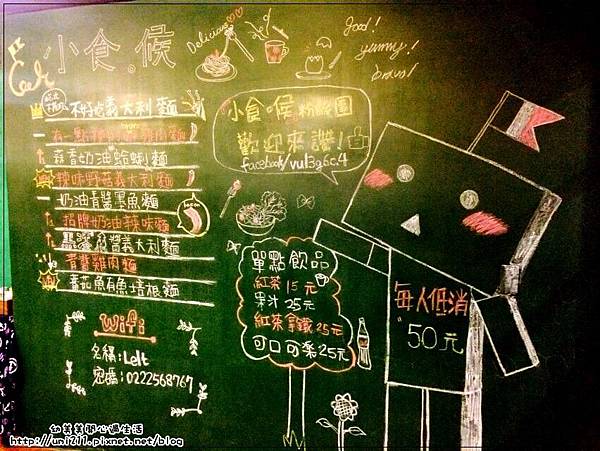 小食。候
Delicious
Good!
yummy!
bravo!
不好吃義大利麵
蒜香奶油蛤蜊麵
辣味野菇義大利麵
奶油青醬墨魚麵
招牌奶油辣味麵
青醬雞肉麵
番茄魚有魚培根麵
小食。候粉絲團
歡迎來讚!
facebook/vul3g6c4
單點飲品
紅茶 15元
果汁 25元
紅茶拿鐵 25元
可口可樂 25元
每人低消
50元
wifi
名稱:Lelt
密碼:0222568767
幼萁萁開心過生活
http://uni211.pixnet.net/blog